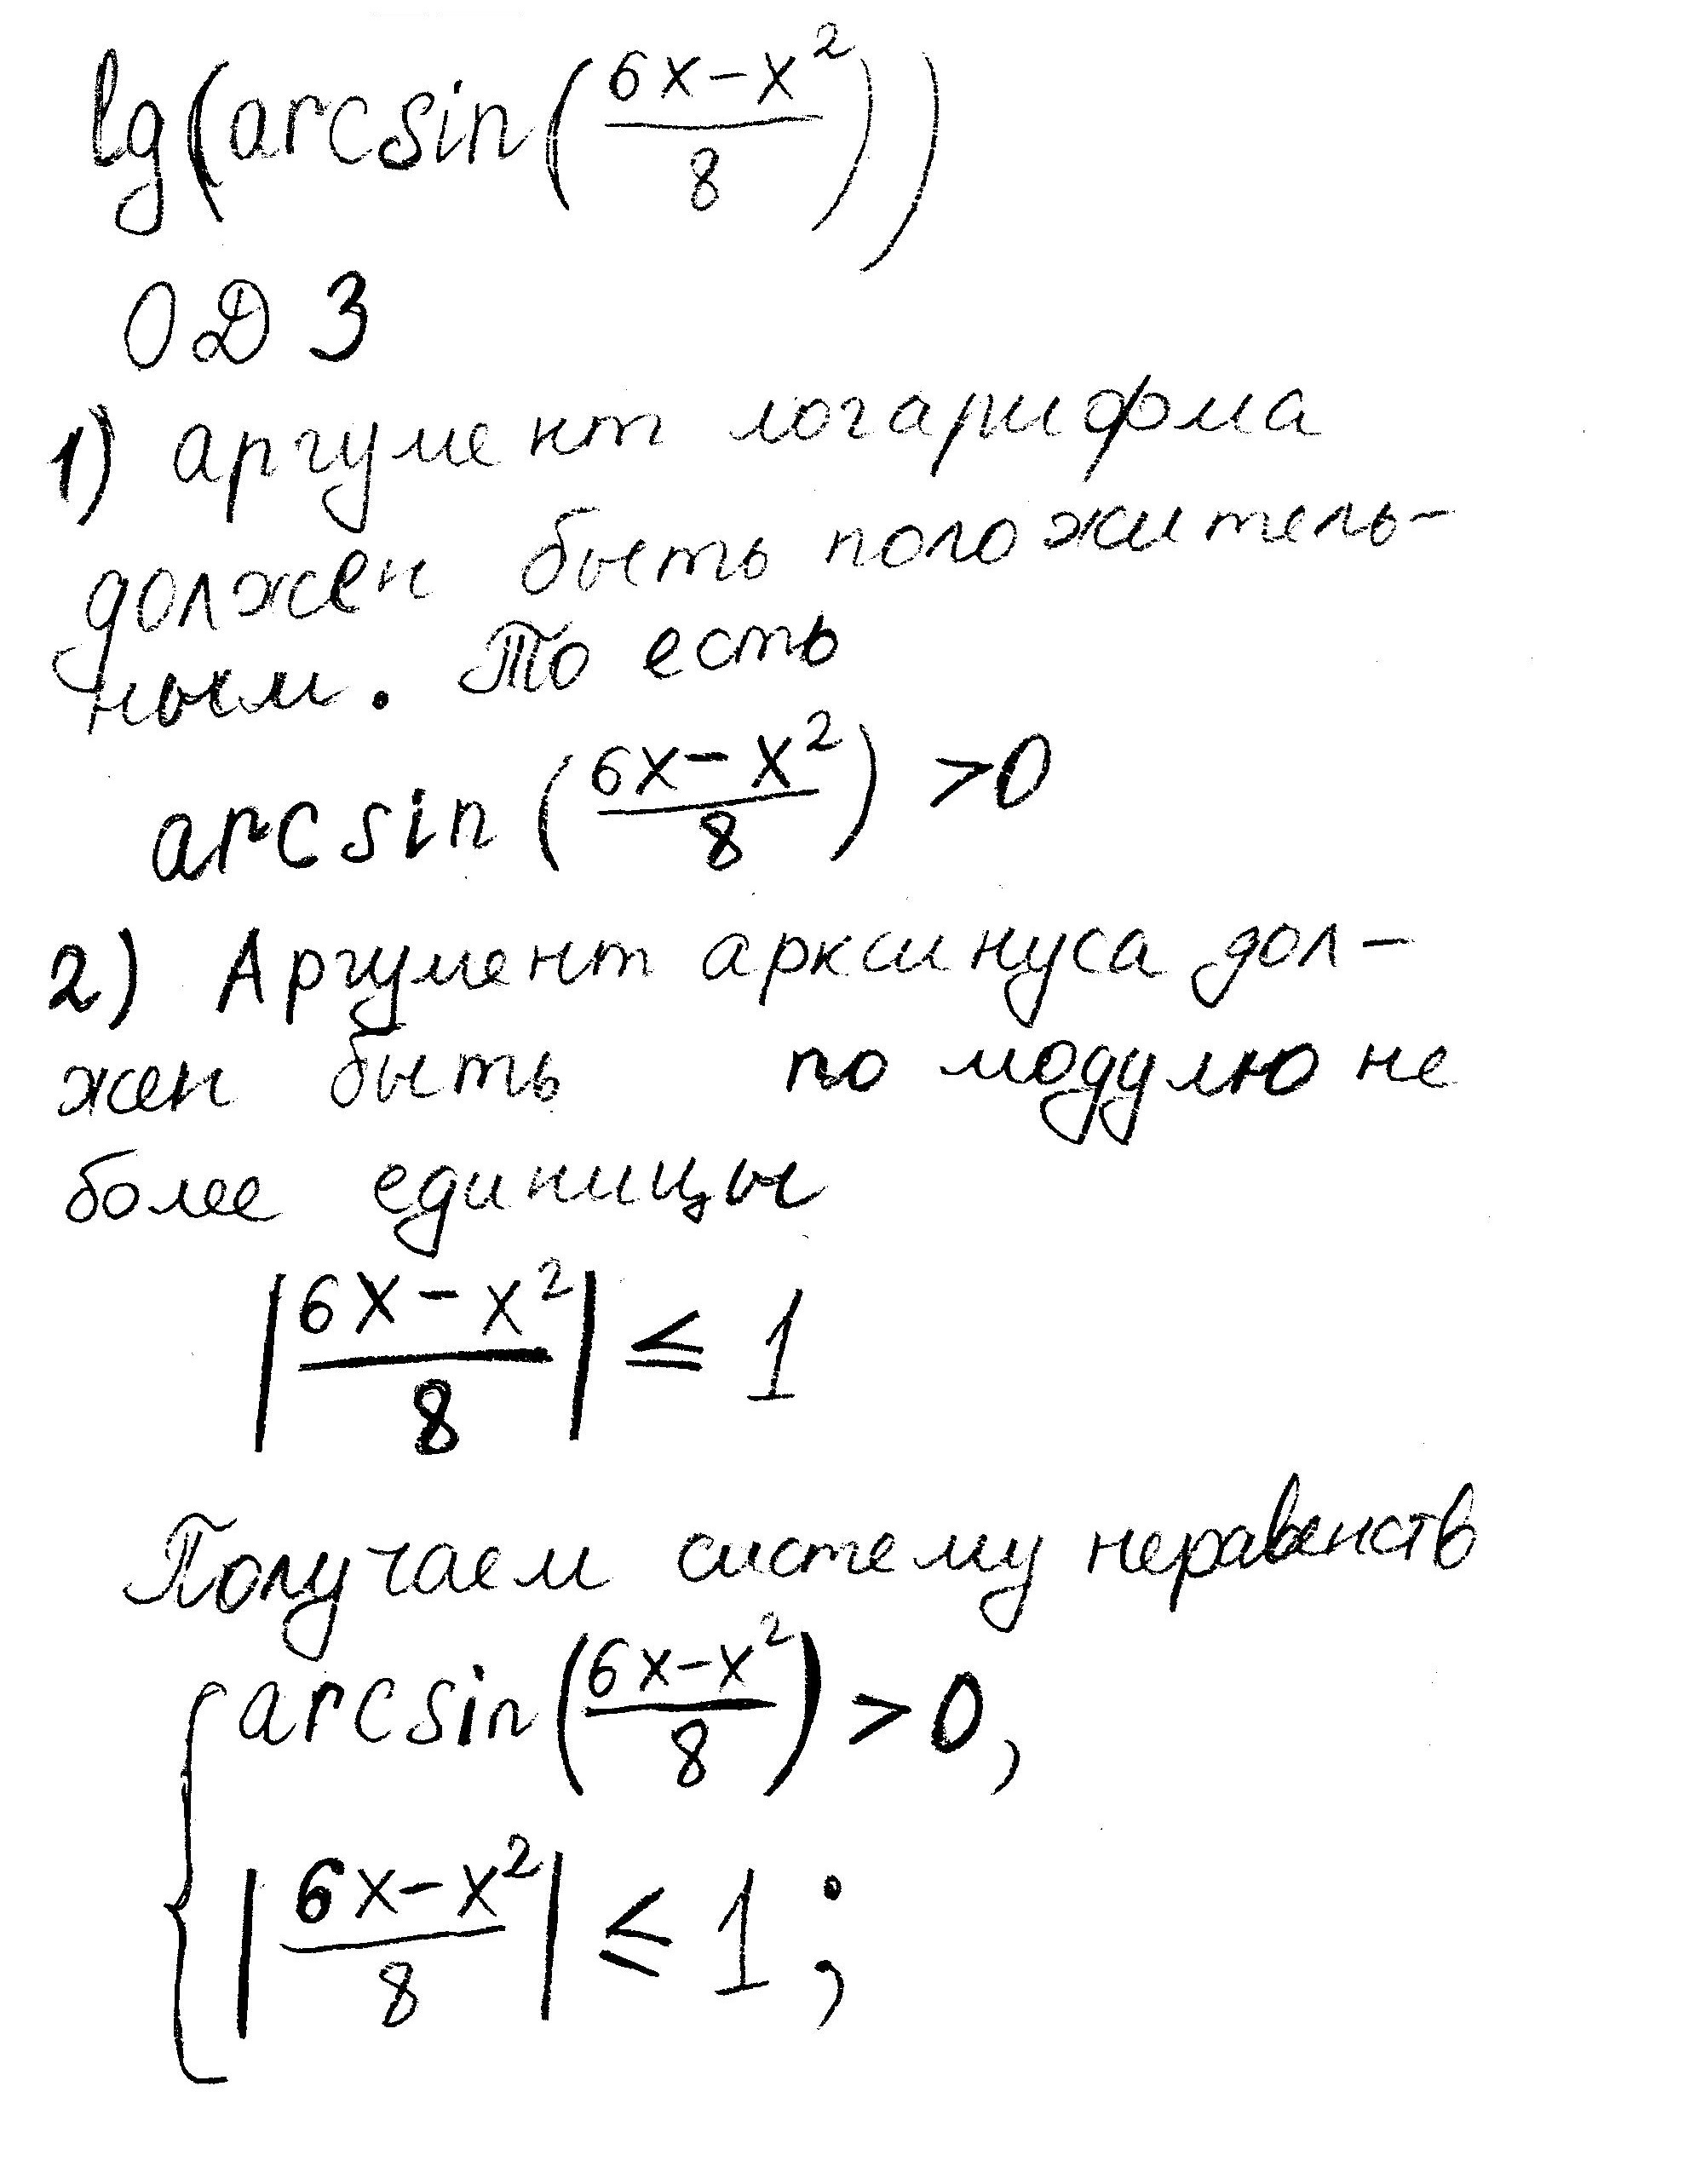 lg(arcsin((6x-x²)/8))
ОДЗ
1) аргумент логарифма
должен быть положитель-
ным. То есть
arcsin((6x-x²)/8) >0
2) Аргумент арксинуса дол-
жен быть по модулю не
более единицы
|(6x-x²)/8| ≤ 1
Получаем систему неравенств
{ arcsin((6x-x²)/8) > 0,
|(6x-x²)/8| ≤ 1;